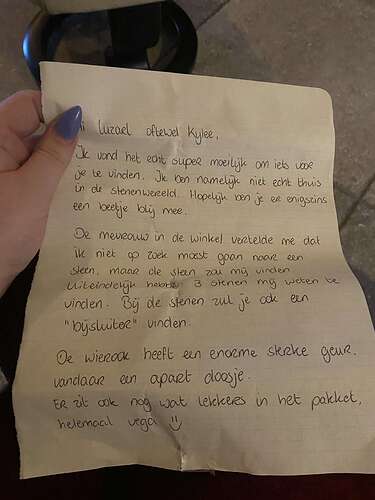 Hi Luzael oftewel Kylee,
Ik vond het echt super moeilijk om iets voor
je te vinden. Ik ben namelijk niet echt thuis
in de stenenwereld. Hopelijk ben je er enigszins
een beetje blij mee.
De mevrouw in de winkel vertelde me dat
ik niet op zoek moest gaan naar een
steen, maar de steen zou mij vinden
Uiteindelijk hebben 3 stenen mij weten te
vinden. Bij de stenen zul je ook een
"bijsluiter" vinden.
De wierook heeft een enorme sterke geur.
vandaar een apart doosje.
Er zit ook nog wat lekkers in het pakket,
helemaal vega